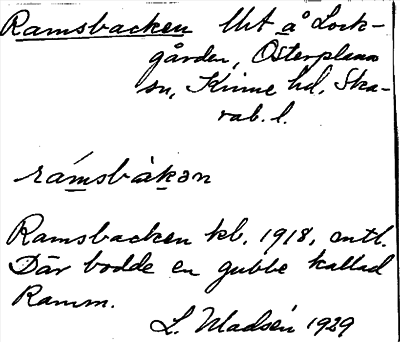 Ramsbacken lht å Lock-
gården, Österplana
sn, Kinne hd, Ska-
rab. l.
ràmsbàkən
Ramsbacken kb. 1918, entl.
Där bodde en gubbe kallad
Ramm.
L. Madsén 1929